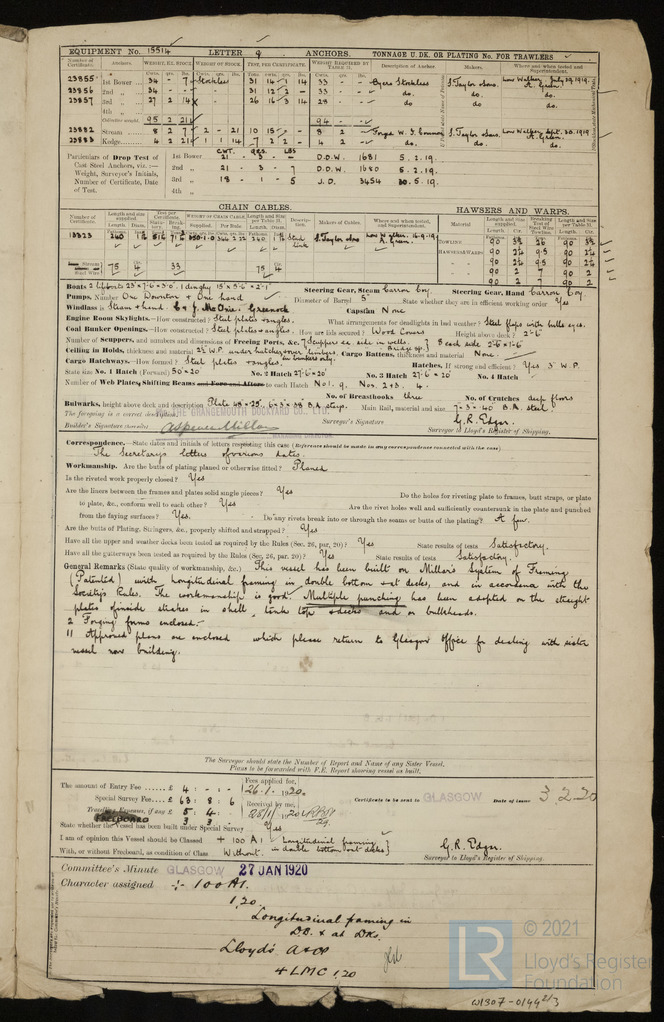 EQUIPMENT No. 15514 LETTER q ANCHORS. TONNAGE U. DK. OR PLATING No. FOR TRAWLERS
Number of Certificate. Anchors. WEIGHT, EX. STOCK. WEIGHT OF STOCK. TEST, PER CERTIFICATE. WEIGHT REQUIRED BY TABLE 31. Description of Anchor. Makers. Where and when tested and Superintendent.
23855 1st Bower 34 - 7 Stockless 31 14 1 14 33 - - Byers Stockless S. Taylor & Sons. Low Walker, July 29, 1919. A. Green.
23856 2nd „ 34 - - 31 12 2 - 33 - - do. do. do.
23857 3rd „ 27 2 14 26 16 3 14 28 - - do. do. do.
Collective weight 95 2 21 94 - -
23882 Stream 8 2 7 2 - 21 10 15 - - 8 2 - S. Taylor & Sons. Low Walker, Sept. 30, 1919. A. Green
23883 Kedge 4 2 21 1 1 14 7 2 2 - 4 2 - do. do. do.
Particulars of Drop Test of Cast Steel Anchors, viz.:— Weight, Surveyor's Initials, Number of Certificate, Date of Test.
CWT. QRS. LBS
1st Bower 21 - 3 - D.D.W. 1681 5.2.19.
2nd „ 21 - 3 - 7 D.D.W. 1680 5.2.19.
3rd „ 18 - 1 - 5 J.D. 3454 30.5.19.
4th „
CHAIN CABLES. HAWSERS AND WARPS.
Number of Certificate. Length and size supplied. Test per Certificate. WEIGHT OF CHAIN CABLE. Length and Size per Table 31. Description. Makers of Cables. Where and when tested, and Superintendent. Material Length and size supplied. Breaking Test of Steel Wire Towline. Length and Size per Table 31.
S. Taylor & Sons Low Walker A. Green.
TOWLINE 90 26 90
HAWSERS & WARPS 90 2¼ 9.5 90 2¼
90 2¼ 9.5 90 2¼
90 2 7 90 2
90 2 7 90 2
Steel Wire 75 4 33 75 4
Boats 2 Lifeboats 1 dinghy Steering Gear, Steam Carron Coy. Steering Gear, Hand Carron Coy.
Pumps, Number One Downton & One hand Diameter of Barrel 5" State whether they are in efficient working order Yes
Windlass is Steam & hand. Greenock Capstan None
Engine Room Skylights.—How constructed? Steel plates & angles. What arrangements for deadlights in bad weather? Steel flaps with bulls eyes.
Coal Bunker Openings.—How constructed? Steel plates & angles. How are lids secured? Wood Covers Height above deck? 2'-6"
Number of Scuppers, and numbers and dimensions of Freeing Ports, &c. 7 Scuppers ea side in wells 8 each side 2'-6" × 1'-6"
Ceiling in Holds, thickness and material 2½ W.P. under hatches over limbers. Cargo Battens, thickness and material None.
Cargo Hatchways.—How formed? Steel plates & angles. in bunkers only. Hatches, If strong and efficient? Yes 3" W.P.
State size No. 1 Hatch (Forward) 30' × 20' No. 2 Hatch 27'-6" × 20' No. 3 Hatch 27'-6" × 20' No. 4 Hatch
Number of Web Plates, Shifting Beams and Fore and Afters to each Hatch No. 1. 9. Nos. 2 & 3. 4.
No. of Breasthooks three No. of Crutches deep floors
Bulwarks, height above deck and description Plate Main Rail, material and size B.A. steel
The foregoing is a correct description FOR THE GRANGEMOUTH DOCKYARD CO. LTD.
Builder's Signature (here to) A Spence Millar MANAGING DIRECTOR. Surveyor's Signature G. R. Edgar. Surveyor to Lloyd's Register of Shipping.
Correspondence.—State dates and initials of letters respecting this case (Reference should be made in any correspondence connected with the case)
The Secretary's letters of various dates.
Workmanship. Are the butts of plating planed or otherwise fitted? Planed
Is the riveted work properly closed? Yes
Are the liners between the frames and plates solid single pieces? Yes Do the holes for riveting plate to frames, butt straps, or plate
to plate, &c., conform well to each other? Yes Are the rivet holes well and sufficiently countersunk in the plate and punched
from the faying surfaces? Yes. Do any rivets break into or through the seams or butts of the plating? A few.
Are the butts of Plating, Stringers, &c., properly shifted and strapped? Yes
Have all the upper and weather decks been tested as required by the Rules (Sec. 26, par. 20)? Yes State results of tests Satisfactory.
Have all the gutterways been tested as required by the Rules (Sec. 26, par. 20)? Yes State results of tests Satisfactory.
General Remarks (State quality of workmanship, &c.) This vessel has been built on Millar's System of Framing
(Patented) with longitudinal framing in double bottom & at decks, and in accordance with the
Society's Rules. The workmanship is good. Multiple punching has been adopted on the straight
plates of inside strakes in shell, tank top & decks and on bulkheads.
2 Forging forms enclosed.-
11 Approved plans are enclosed which please return to Glasgow Office for dealing with sister
vessel now building.
The Surveyor should state the Number of Report and Name of any Sister Vessel.
Plans to be forwarded with F.E. Report showing vessel as built.
The amount of Entry Fee £ 4 : - : - Fees applied for, 26.1.1920.
Special Survey Fee £ 63 : 8 : 6 Received by me, Certificate to be sent to GLASGOW Date of issue 3.2.20
Travelling Expenses, if any £ 5 : 4 :
FREEBOARD 3 3
State whether the Vessel has been built under Special Survey Yes
I am of opinion this Vessel should be Classed + 100 A1 Longitudinal framing
With, or without Freeboard, as condition of Class Without. in double bottom & at decks G. R. Edgar.
Surveyor to Lloyd's Register of Shipping.
Committee's Minute GLASGOW 27 JAN 1920
Character assigned + 100 A1.
1,20.
Longitudinal framing in
D.B. & at DKs.
Lloyd's A & CP
+ LMC 1,20
© 2021
LR Lloyd's Register
Foundation
W1307-0144 2/3